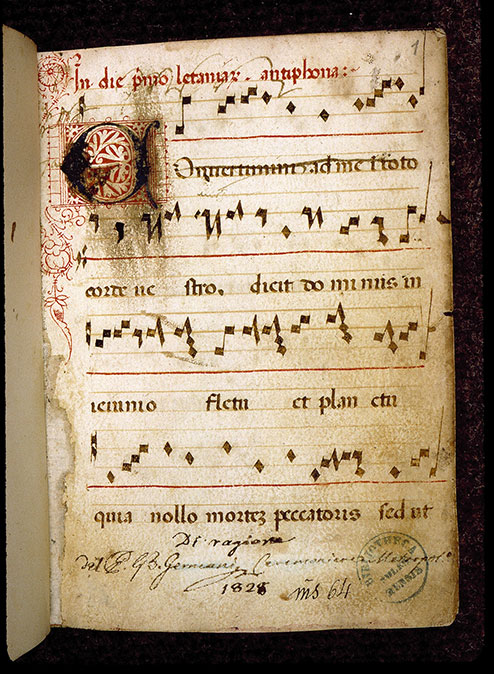 In die pmo letaniaz. antiphona:
1
Onvertimini ad me i toto
corde ue stro, dicit do minus in
ieiunio fletu et plan ctu
quia nollo mortez peccatoris sed ut
Di ragione
del P. GB. Germani, Ceremoniere
1828 ms 64
BIBLIOTHECA